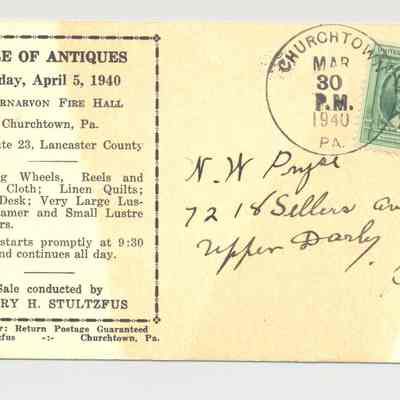 LE OF ANTIQUES
day, April 5, 1940
RNARVON FIRE HALL
Churchtown, Pa.
te 23, Lancaster County
g Wheels, Reels and
Cloth; Linen Quilts;
Desk; Very Large Lus-
amer and Small Lustre
rs.
starts promptly at 9:30
nd continues all day.
Sale conducted by
RY H. STULTZFUS
r: Return Postage Guaranteed
zfus -:- Churchtown, Pa.
CHURCHTOWN
MAR
30
P.M.
1940
PA.
UNITED
N. W. Pryse
7218 Sellers av
Upper Darby